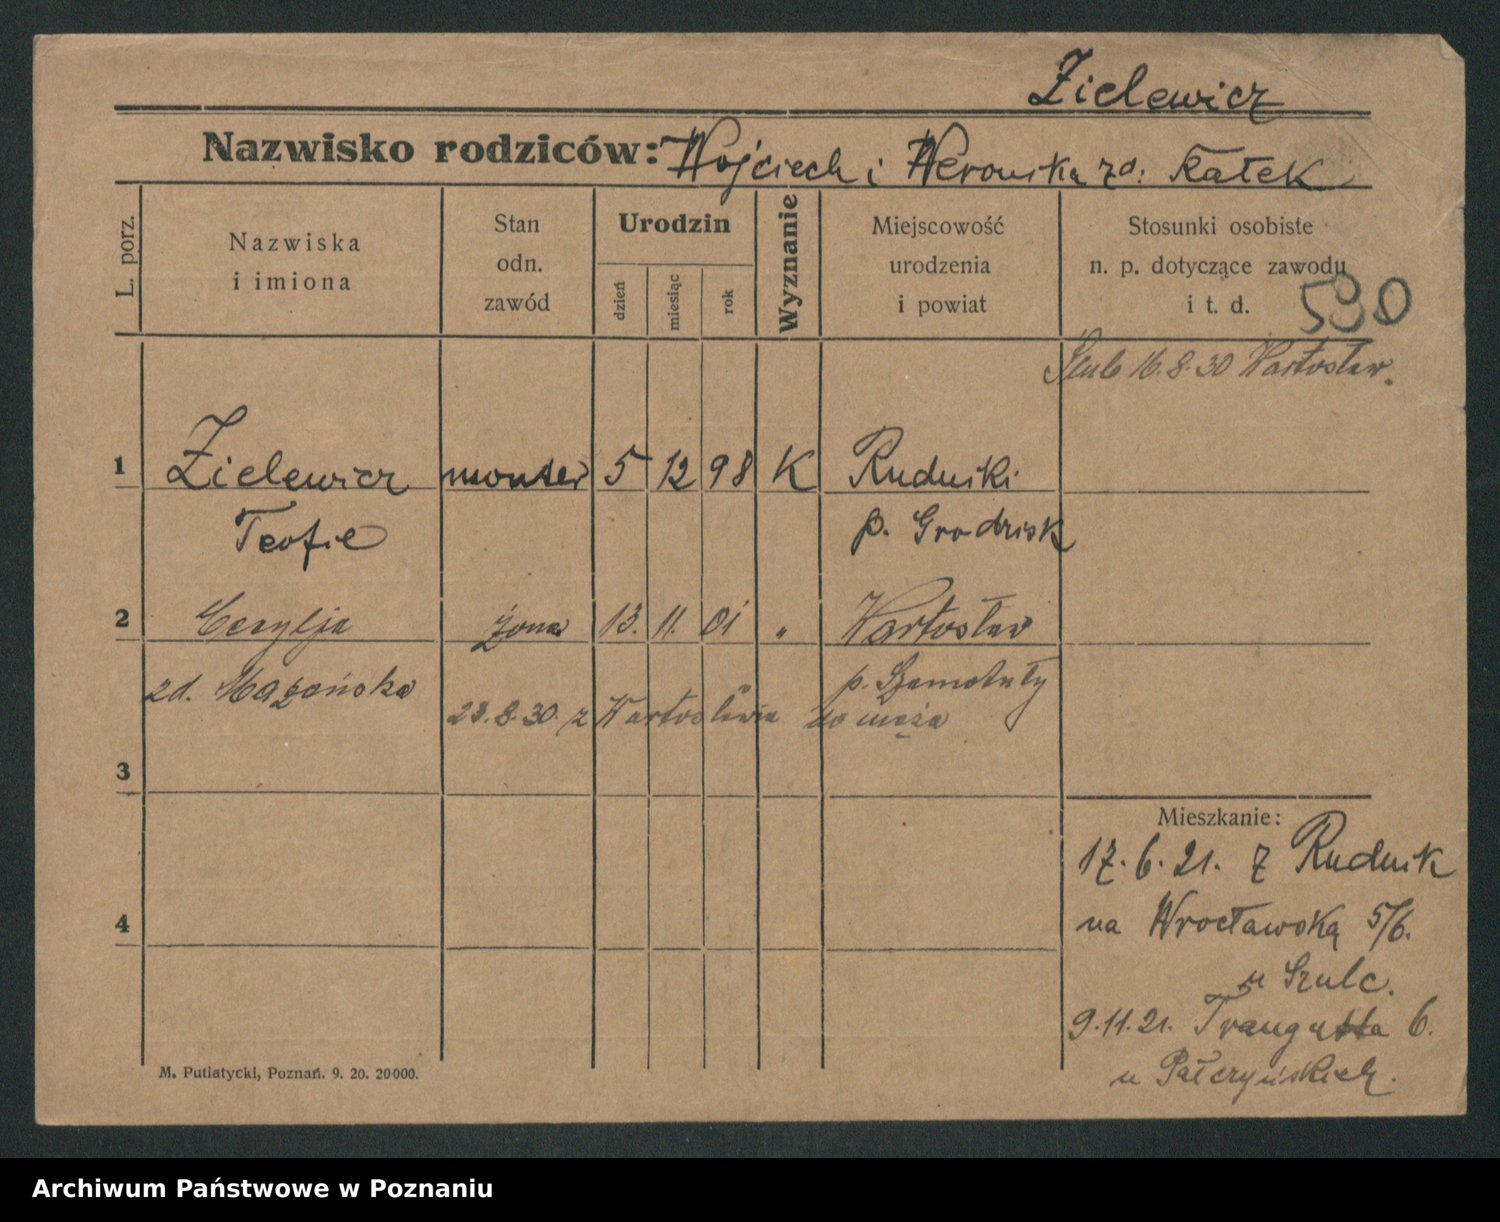 Zielewicz
Nazwisko rodziców: Wojciech i Weronika zd: Kałek
L. porz.
Nazwiska
i imiona
Stan
odn.
zawód
Urodzin
dzień
miesiąc
rok
Wyznanie
Miejscowość
urodzenia
i powiat
Stosunki osobiste
n. p. dotyczące zawodu
i t. d.
590
Ślub 16.8.30 Wartosław.
1 Zielewicz monter 5 12 98 K Rudniki
Teofil p. Grodzisk
2 Cecylja żona 13. 11. 01 " Wartosław
zd. p. Szamotuły
23.8.30. z Wartosławia do męża
3
Mieszkanie:
17.6.21. z Rudnik
4
na Wrocławską 5/6.
u Szulc.
9.11.21. Traugutta 6.
u Pałczyńskich.
M. Putiatycki, Poznań. 9. 20. 20000.
Archiwum Państwowe w Poznaniu